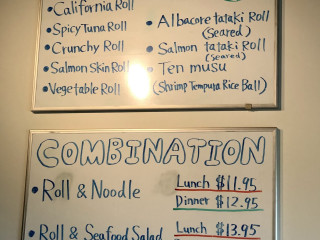 • California Roll
• Spicy Tuna Roll
• Crunchy Roll
• Salmon Skin Roll
• Vegetable Roll
• Albacore tataki Roll
(Seared)
• Salmon tataki Roll
(seared)
• Ten musu
(Shrimp Tempura Rice Ball)
COMBINATION
• Roll & Noodle
Lunch $11.95
Dinner $12.95
• Roll & Seafood Salad
Lunch $13.95